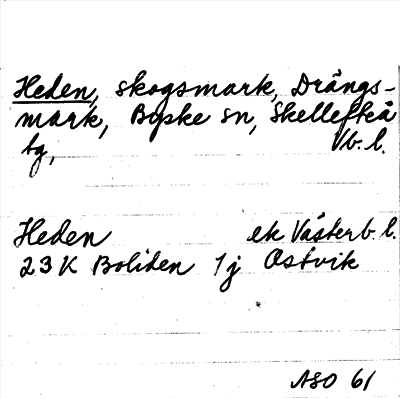 Heden, skogsmark, Drängs-
mark, Byske sn, Skellefteå
tg, Vb. l.
Heden ek Västerb. l.
23 K Boliden 1j Östvik
ASO 61